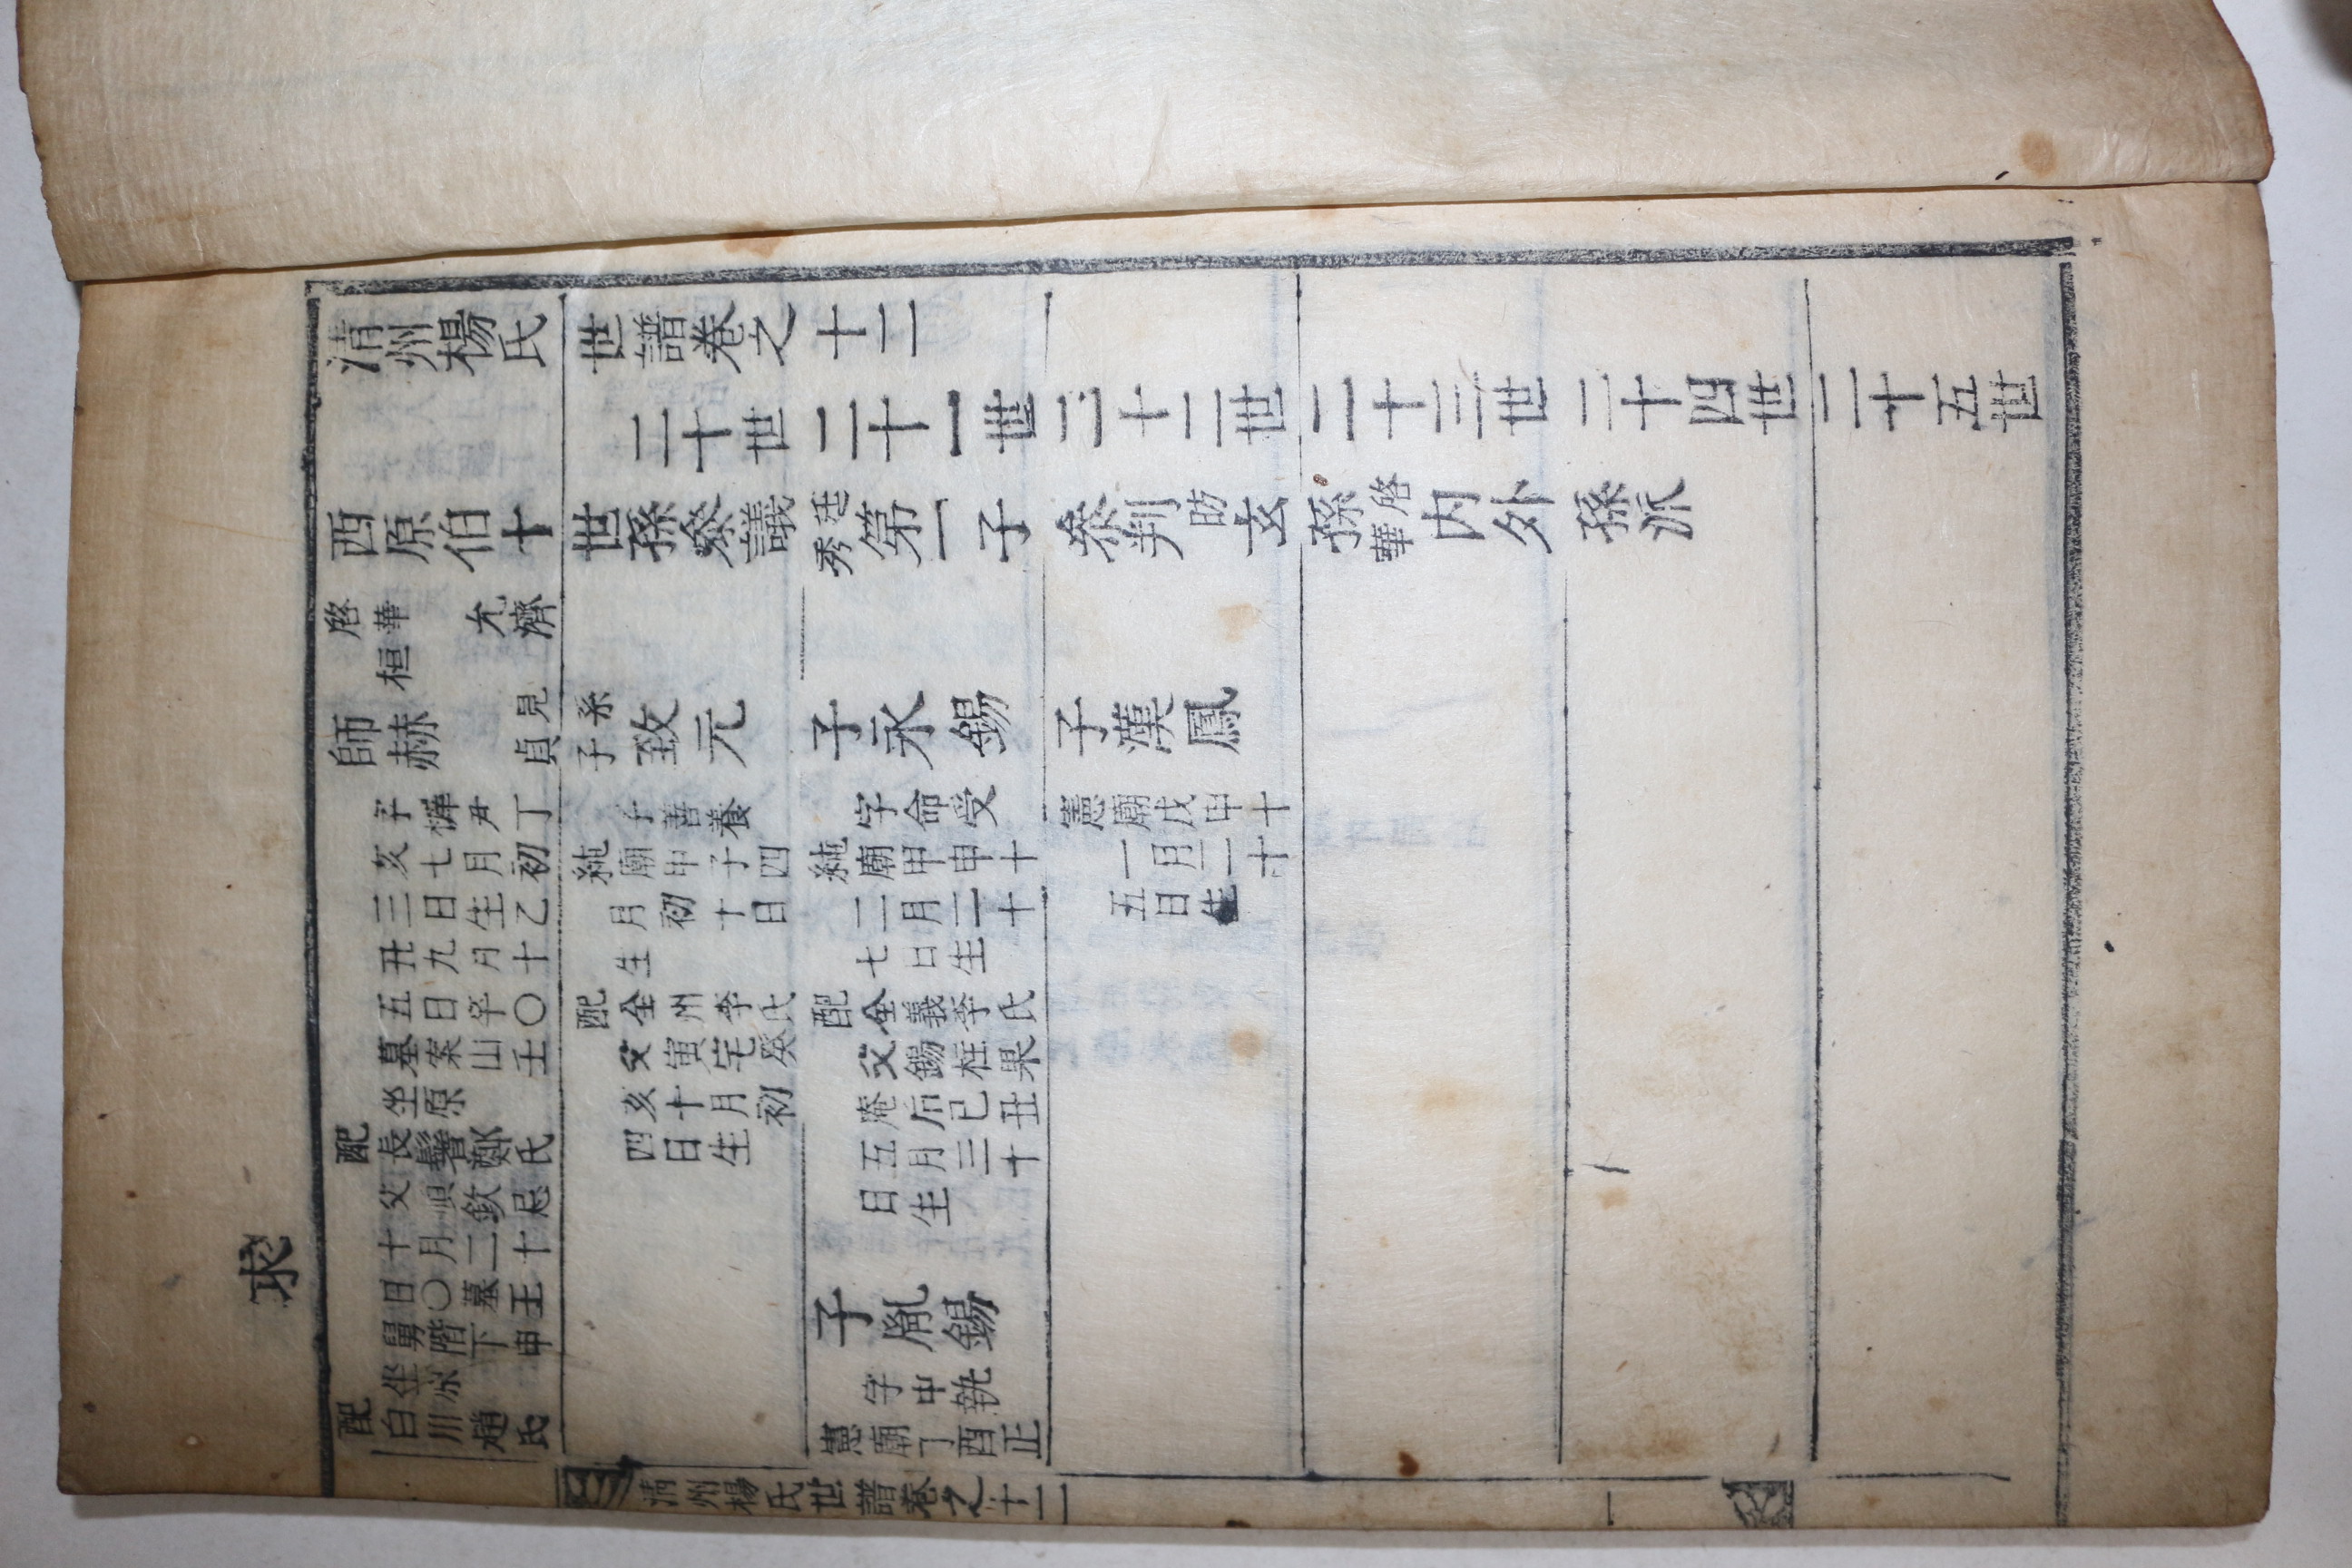 求
淸州楊氏世譜卷之十二
二十世二十一世二十二世二十三世二十四世二十五世
西原伯十世孫叅議廷秀第一子叅判昉玄孫啓華內外孫派
啓華 允濟
桓
師赫 見貞
字樺尹丁
亥七月初
三日生乙
丑九月十
五日卒〇
墓案山壬
坐原
配長鬐鄭氏
父順欽忌
十月二十
日〇墓王
舅階下申
坐原
配白川趙氏
系子致元
字善養
純廟甲子四
月初十日
生
配全州李氏
父寅宅癸
亥十月初
四日生
子永錫
字命受
純廟甲申十
二月二十
七日生
配全義李氏
父錫柱果
庵后己丑
五月三十
日生
子胤錫
字中執
憲廟丁酉正
子漢鳳
憲廟戊申十
一月二十
五日生
淸州楊氏世譜卷之十二
一